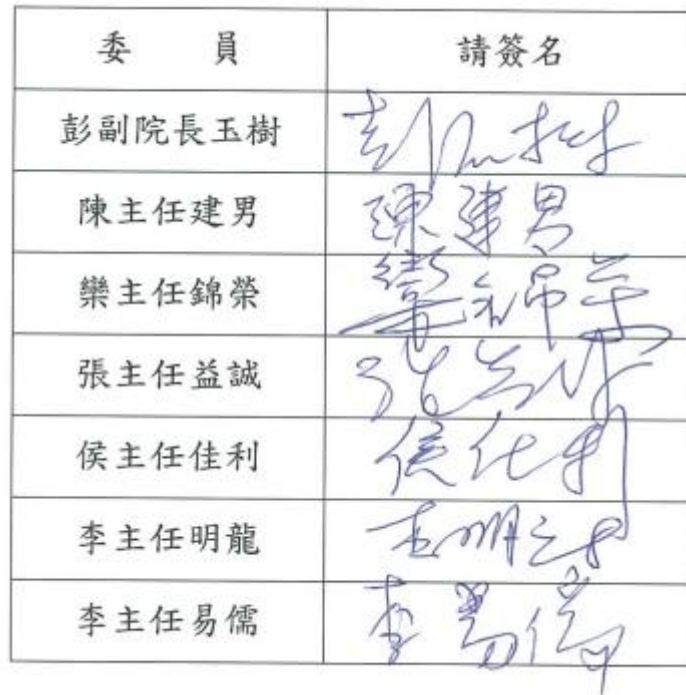 委員 請簽名
彭副院長玉樹 彭玉樹
陳主任建男 陳建男
欒主任錦榮 欒錦榮
張主任益誠 張益誠
侯主任佳利 侯佳利
李主任明龍 李明龍
李主任易儒 李易儒